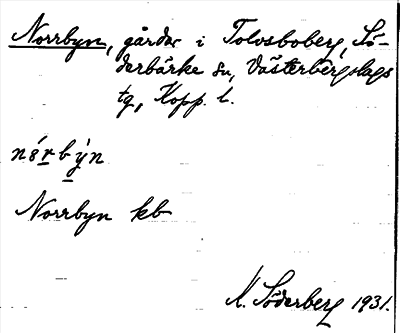 Norrbyn, gårdar i Tolvsboberg, Sö-
derbärke sn, Västerbergslags
tg, Kopp. l.
Norrbyn kb
Söderberg 1931.